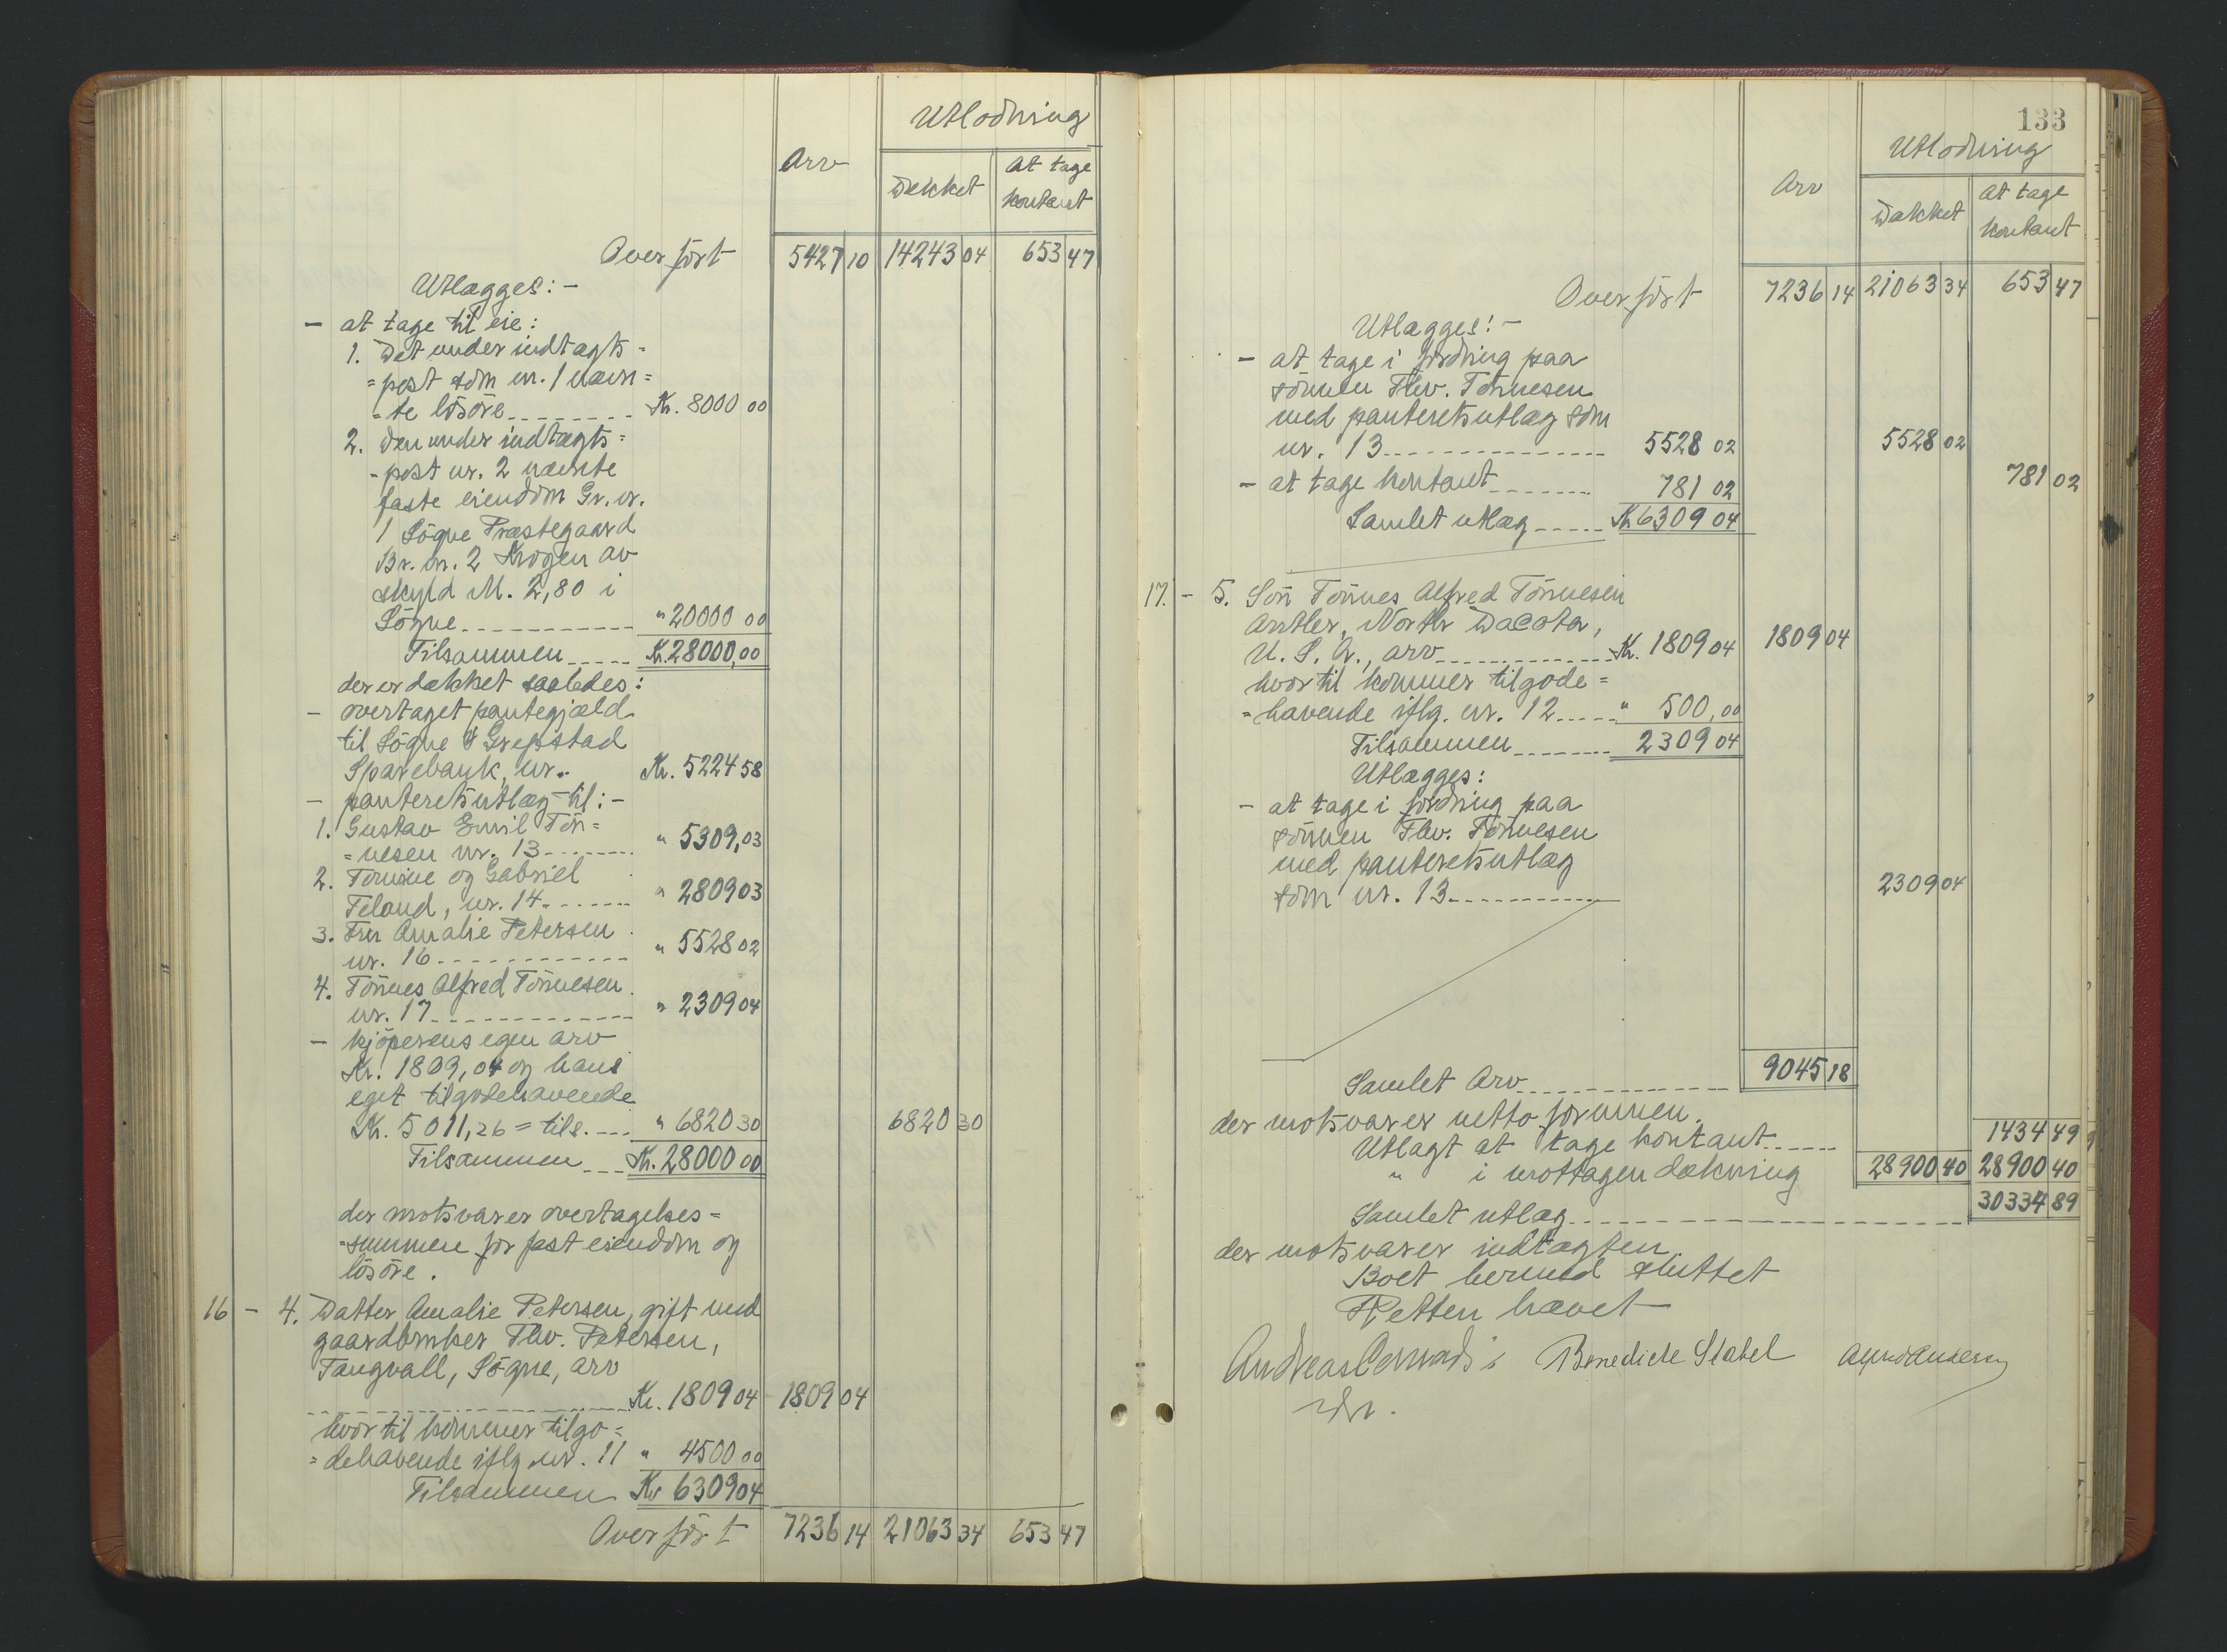 Utlodning
Arv
Dækket
At tage
kontant
Overført 5427 10 14243 04 653 47
Utlægges:-
- at tage til eie:
1. Det under indtægts-
=post som nr. 1 nævn=
=te løsöre Kr. 8000 00
2. Den under indtægts=
-post nr. 2 nævnte
faste eiendom Gr. nr.
1 Sögne Præstegaard
Br. nr. 2 Krogen av
skyld M. 2,80 i
Sögne " 20000 00
Tilsammen Kr. 28000,00
der er dækket saaledes:
- overtaget pantegjæld
til Sögne & Grepstad
Sparebank, nr. Kr. 5224 58
- panteretsutlæg til:-
1. Gustav Emil Tön=
=nesen nr. 13 " 5309,03
2. Tomine og Gabriel
Feland, nr. 14 " 2809 03
3. Fru Amalie Petersen
nr. 16 " 5528 02
4. Tönnes Alfred Tönnesen
nr. 17 " 2309 04
- kjöperens egen arv
Kr. 1809,04 og hans
eget tilgodehavende
Kr. 5011,26 = tils. " 6820 30 6820 30
Tilsammen Kr. 28000 00
der motsvarer overtagelses=
=summen for fast eiendom og
lösöre.
16 - 4. Datter Amalie Petersen, gift med
gaardbruker Thv. Petersen,
Tangvall, Sögne, arv
Kr. 1809 04 1809 04
hvortil kommer tilgo=
=dehavende iflg. nr. 11 " 4500 00
Tilsammen Kr 6309 04
Overført 7236 14 21063 34 653 47
133
Utlodning
Arv
Dækket
At tage
kontant
Overført 7236 14 21063 34 653 47
Utlægges:-
- at tage i fordring paa
sönnen Thv. Tönnesen
med panteretsutlæg som
nr. 13 5528 02 5528 02
- at tage kontant 781 02 781 02
Samlet utlæg Kr 6309 04
17. - 5. Sön Tönnes Alfred Tönnesen
Antler, North Dacota,
U. S. A., arv Kr. 1809 04 1809 04
hvortil kommer tilgode=
=havende iflg. nr. 12 " 500,00
Tilsammen 2309 04
Utlægges:
- at tage i fordring paa
sönnen Thv. Tönnesen
med panteretsutlæg
som nr. 13 2309 04
Samlet Arv 9045 18
der motsvarer netto formuen.
Utlagt at tage kontant 1434 49
" i mottagen dækning 28900 40 28900 40
Samlet utlæg 30334 89
der motsvarer indtægten.
Boet hermed sluttet
Retten hævet
Andreas Benedicte Stabel